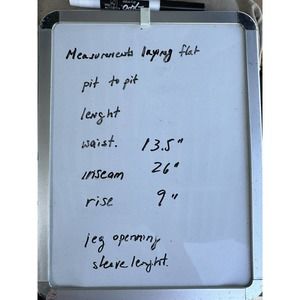 Measurements laying flat
pit to pit
lenght
waist. 13.5"
inseam 26"
rise 9"
leg openning
sleave lenght.